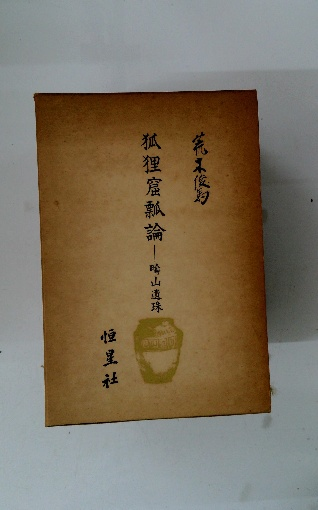 荒木俊馬
狐狸窟瓢論―疇山遺珠
恒星社